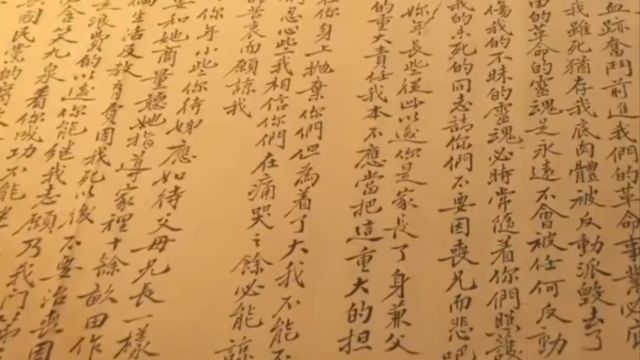 血跡奮鬥前進我們的革命事業必
我雖死猶存我底肉體被反動派毀去了
由的革命的靈魂之永遠不會被任何反動
傷我的不昧的靈魂必時常隨着你們照護
我的未死的同志請你們不要因喪兄而悲吧
妳年長些從此以後你是家長了身兼父
的重大責任我本不應當把這重大的担
在你身上拋棄你們但為着了大我不能不
們忍心些我相信你們在痛哭之餘必能諒
苦衷而願諒我
你年小些你待姊應如待父母兄長一樣
要和她商量聽她指導家裡十餘畝田作
生活及教育費用我死以後不要治喪因
是浪費的以後你能繼我志願乃我門第
含笑九泉看你成功不能
國民黨的腐